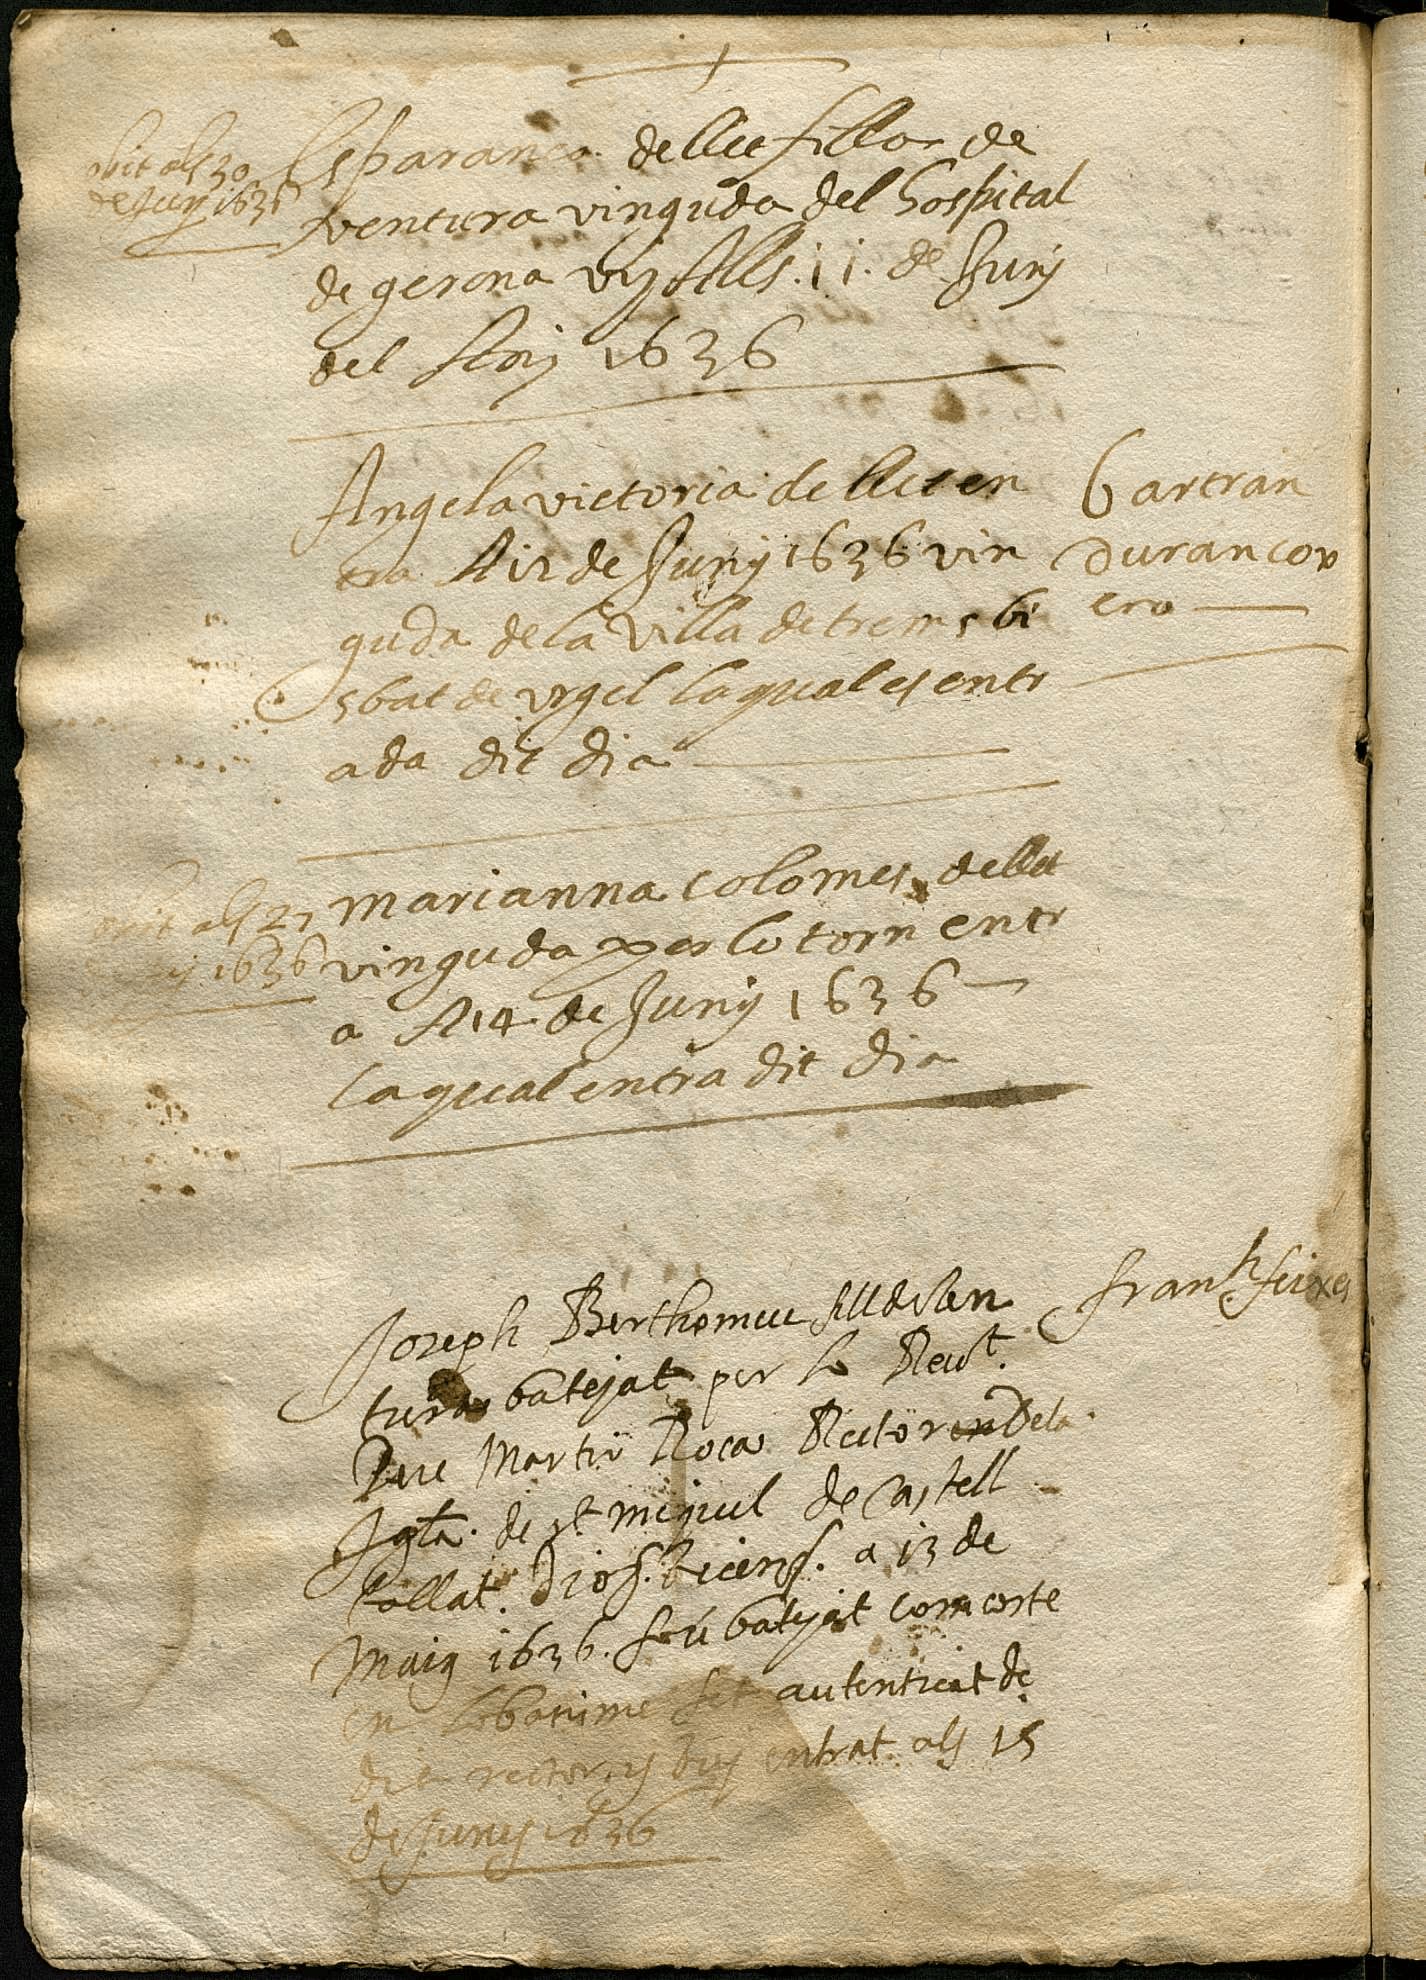 obit als 30
de Juny 1636
Esparansa de llet filla de
ventura vinguda del hospital
de gerona vuy Als .11. de Juny
del Any 1636
Angela victoria de llet en
tra A 12 de Juny 1636 vin
guda de la villa de tremp bi
sbat de urgel la qual es entr
ada dit dia
bartran
Duran cor
era
obit als 27
1636
marianna colomes de llet
vinguda per lo torn entr
a A 14 de Juny 1636
la qual entra dit dia
Joseph Berthomeu fill de ven
tura batejat per lo Reut.
Pere Martir Roca Rector de la
Igla. de st miquel de Castell
tallat. Dios. Vicens. a 13 de
Maig 1636. fou batejat com coste
en lo batisme fet autenticat de
dit rector y vuy entrat als 15
de Juny 1636